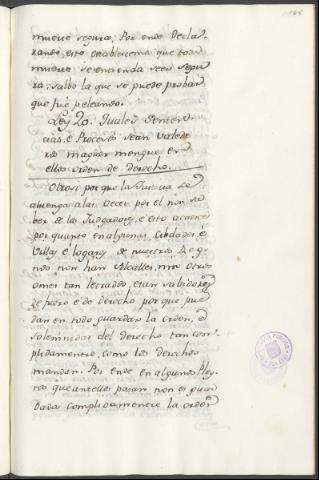 muerte segura; Por ende Decla-
rando, esto establecemos que toda
muerte se entienda seer segu-
ra; salbo la que se puede probar
que fue peleando.
Ley 20. Quales Senten-
cias, é Procesos sean valede-
ros maguer mengue en
ellos orden de derecho.
Otrosi por que la Justicia se
aluenga a las veces por el non sa-
ber de los Judgadores, e esto acaesce
por quanto en algunas Cibdades é
Villas é logares de nuestros Reg-
nos non han Alcalles, nin otros
omes tan letrados, e tan sabidores
de fuero é de derecho por que pue-
dan en todo guardar la orden, é
solemnidat del derecho tan com-
plidamente, como los derechos
mandan. Por ende en algunos Pley-
tos que ante ellos pasan non es guar-
dada complidamente la orden